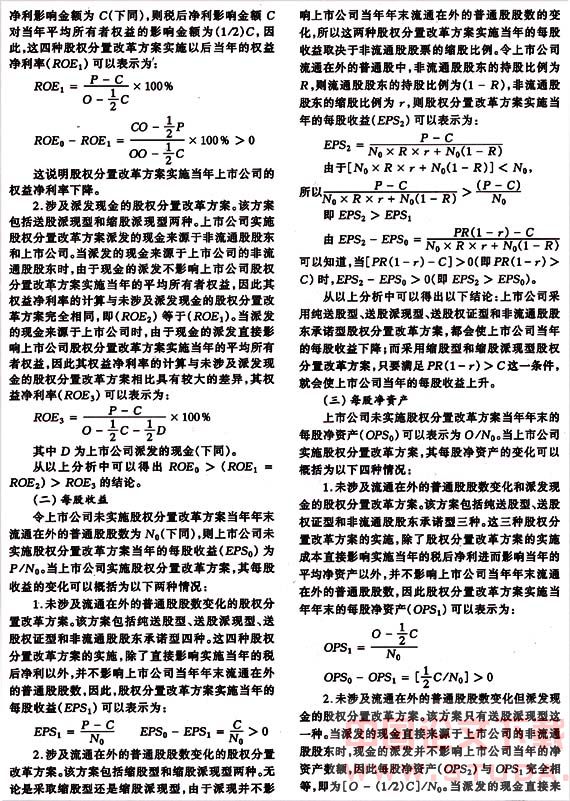 净利影响金额为 C(下同),则税后净利影响金额 C
对当年平均所有者权益的影响金额为(1/2)C,因
此,这四种股权分置改革方案实施以后当年的权益
净利率(ROE₁)可以表示为:
ROE₁ = (P - C)/(O - ½C) × 100%
ROE₀ - ROE₁ = (CO - ½P)/(OO - ½C) × 100% > 0
这说明股权分置改革方案实施当年上市公司的
权益净利率下降。
2.涉及派发现金的股权分置改革方案。该方案
包括送股派现型和缩股派现型两种。上市公司实施
股权分置改革方案派发的现金来源于非流通股股东
和上市公司。当派发的现金来源于上市公司的非流
通股股东时,由于现金的派发不影响上市公司股权
分置改革方案实施当年的平均所有者权益,因此其
权益净利率的计算与未涉及派发现金的股权分置改
革方案完全相同,即(ROE₂) 等于(ROE₁)。当派发
的现金来源于上市公司时,由于现金的派发直接影
响上市公司股权分置改革方案实施当年的平均所有
者权益,因此其权益净利率的计算与未涉及派发现
金的股权分置改革方案相比具有较大的差异,其权
益净利率(ROE₃)可以表示为:
ROE₃ = (P - C)/(O - ½C - ½D) × 100%
其中 D 为上市公司派发的现金(下同)。
从以上分析中可以得出 ROE₀ > (ROE₁ =
ROE₂) > ROE₃ 的结论。
(二)每股收益
令上市公司未实施股权分置改革方案当年年末
流通在外的普通股股数为 N₀(下同),则上市公司未
实施股权分置改革方案当年的每股收益(EPS₀) 为
P/N₀。当上市公司实施股权分置改革方案,其每股
收益的变化可以概括为以下两种情况:
1.未涉及流通在外的普通股股数变化的股权分
置改革方案。该方案包括纯送股型、送股派现型、送
股权证型和非流通股股东承诺型四种。这四种股权
分置改革方案的实施,除了直接影响实施当年的税
后净利以外,并不影响上市公司当年年末流通在外
的普通股股数,因此,股权分置改革方案实施当年的
每股收益(EPS₁)可以表示为:
EPS₁ = (P - C)/N₀ EPS₀ - EPS₁ = C/N₀ > 0
2.涉及流通在外的普通股股数变化的股权分置
改革方案。该方案包括缩股型和缩股派现型两种。无
论是采取缩股型还是缩股派现型,由于派现并不影
响上市公司当年年末流通在外的普通股股数的变
化,所以这两种股权分置改革方案实施当年的每股
收益取决于非流通股股票的缩股比例。令上市公司
流通在外的普通股中,非流通股股东的持股比例为
R,则流通股股东的持股比例为(1 - R),非流通股
股东的缩股比例为 r,则股权分置改革方案实施当
年的每股收益(EPS₂)可以表示为:
EPS₂ = (P - C)/(N₀ × R × r + N₀(1 - R))
由于[N₀ × R × r + N₀(1 - R)] < N₀,
所以 (P - C)/(N₀ × R × r + N₀(1 - R)) > (P - C)/N₀
即 EPS₂ > EPS₁
由 EPS₂ - EPS₀ = (PR(1 - r) - C)/(N₀ × R × r + N₀(1 - R))
可以知道,当[PR(1 - r) - C]>0(即 PR(1 - r) >
C) 时,EPS₂ - EPS₀ > 0(即 EPS₂ > EPS₀)。
从以上分析中可以得出以下结论:上市公司采
用纯送股型、送股派现型、送股权证型和非流通股股
东承诺型股权分置改革方案,都会使上市公司当年
的每股收益下降;而采用缩股型和缩股派现型股权
分置改革方案,只要满足 PR(1 - r) > C 这一条件,
就会使上市公司当年的每股收益上升。
(三)每股净资产
上市公司未实施股权分置改革方案当年年末的
每股净资产(OPS₀)可以表示为 O/N₀。当上市公司
实施股权分置改革方案,其每股净资产的变化可以
概括为以下四种情况:
1.未涉及流通在外的普通股股数变化和派发现
金的股权分置改革方案。该方案包括纯送股型、送股
权证型和非流通股股东承诺型三种。这三种股权分
置改革方案的实施,除了股权分置改革方案的实施
成本直接影响实施当年的税后净利进而影响当年的
平均净资产以外,并不影响上市公司当年年末流通
在外的普通股股数,因此股权分置改革方案实施当
年年末的每股净资产(OPS₁)可以表示为:
OPS₁ = (O - ½C)/N₀
OPS₀ - OPS₁ = [½C/N₀] > 0
2.未涉及流通在外的普通股股数变化但派发现
金的股权分置改革方案。该方案只有送股派现型这
一种。当派发的现金直接来源于上市公司的非流通
股股东时,现金的派发并不影响上市公司当年的净
资产数额,因此每股净资产(OPS₂)与 OPS₁ 完全相
等,即为[O - (1/2)C]/N₀。当派发的现金直接来